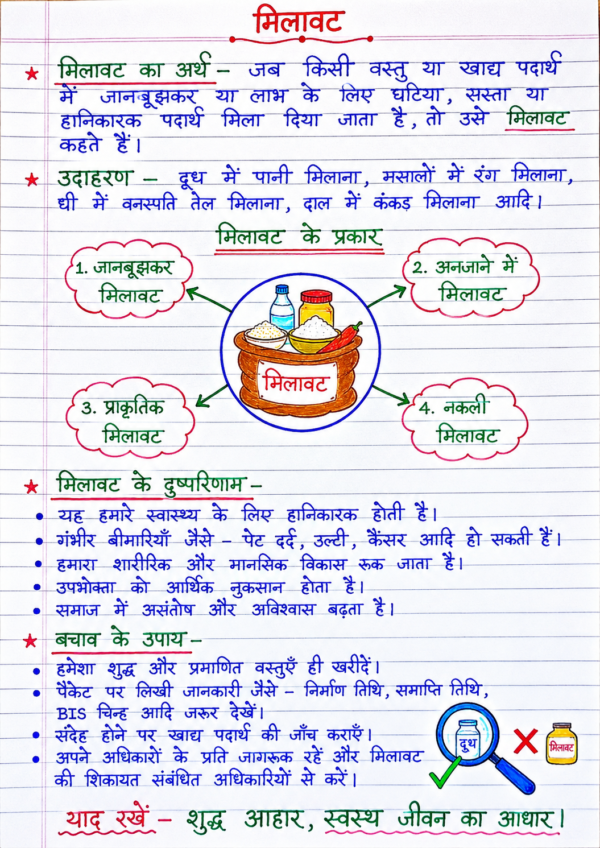 मिलावट
मिलावट का अर्थ – जब किसी वस्तु या खाद्य पदार्थ
में जानबूझकर या लाभ के लिए घटिया, सस्ता या
हानिकारक पदार्थ मिला दिया जाता है, तो उसे मिलावट
कहते हैं।
उदाहरण – दूध में पानी मिलाना, मसालों में रंग मिलाना,
घी में वनस्पति तेल मिलाना, दाल में कंकड़ मिलाना आदि।
मिलावट के प्रकार
1. जानबूझकर
मिलावट
2. अनजाने में
मिलावट
मिलावट
3. प्राकृतिक
मिलावट
4. नकली
मिलावट
मिलावट के दुष्परिणाम –
• यह हमारे स्वास्थ्य के लिए हानिकारक होती है।
• गंभीर बीमारियाँ जैसे – पेट दर्द, उल्टी, कैंसर आदि हो सकती हैं।
• हमारा शारीरिक और मानसिक विकास रूक जाता है।
• उपभोक्ता को आर्थिक नुकसान होता है।
• समाज में असंतोष और अविश्वास बढ़ता है।
बचाव के उपाय –
• हमेशा शुद्ध और प्रमाणित वस्तुएँ ही खरीदें।
• पैकेट पर लिखी जानकारी जैसे – निर्माण तिथि, समाप्ति तिथि,
BIS चिन्ह आदि जरूर देखें।
• संदेह होने पर खाद्य पदार्थ की जाँच कराएँ।
• अपने अधिकारों के प्रति जागरूक रहें और मिलावट
की शिकायत संबंधित अधिकारियों से करें।
दूध
मिलावट
याद रखें – शुद्ध आहार, स्वस्थ जीवन का आधार!